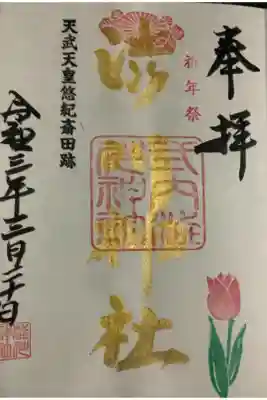 奉拝
祈年祭
澁川神社
天武天皇悠紀斎田跡
令和三年三月二十日